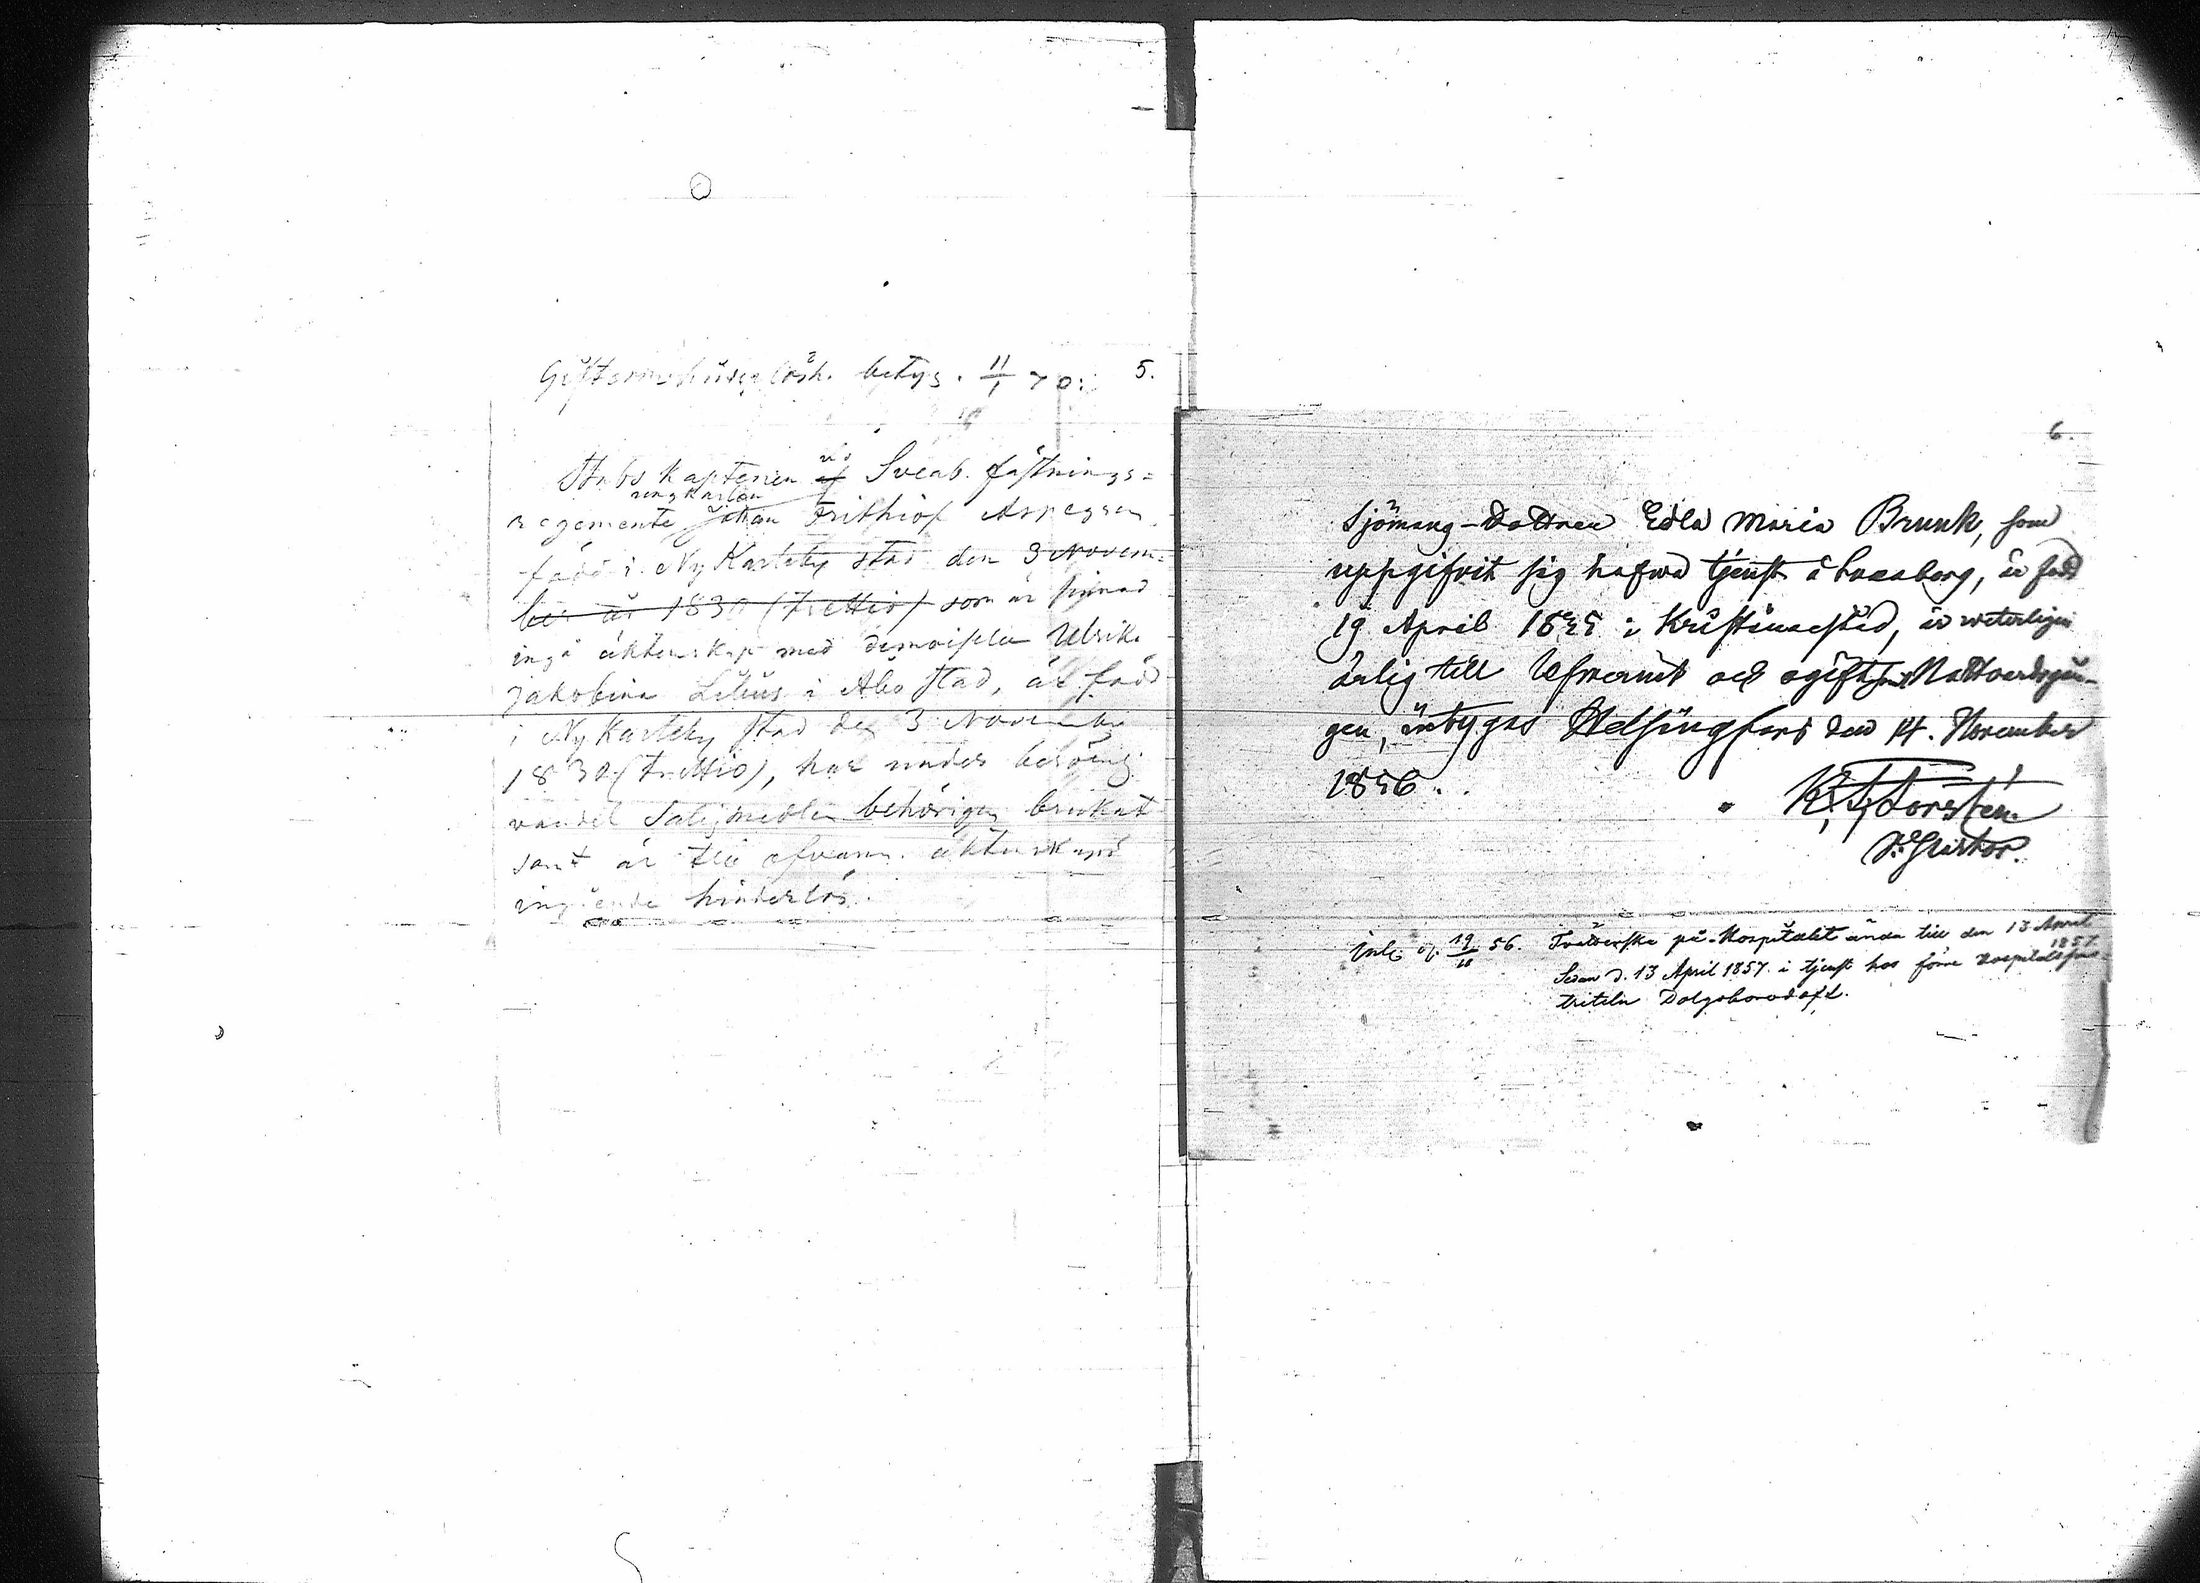 betyg. 11/1 70. 5.
Stabs Kaptenen af vid Sveab. fästnings-
regemente ungkarlen Johan Frithiof Aspegren
född i Ny Karleby stad den 3 Novem-
ber år 1830 (trettio) som är sinnad
ingå äktenskap med demoiselle Ulrika
Jakobina Lilius i Åbo stad, är född
i Ny Karleby stad den 3 November
1830 (trettio), har under
vandel Salighetsmedlen behörigen brukat
samt är till ofvann. äktenskaps
ingående hinderlös.
6.
Sjömans-Dottren Edla Maria Brunk, som
uppgifvit sig hafwa tjenst å Sveaborg, är född
19 April 1835 i Kristinaestad, är weterligen
ärlig till Lefwernet och ogift, samt Nattvardsgån-
gen, intygas Helsingfors den 14. November
1856.
Forstén
V. Pastor.
Inl. 19/11 56. Tvätterska på Hospitalet ända till den 13 April
1857.
Sedan d. 13 April 1857 i tjenst hos förre Hospitals
Dolgoborodoff.